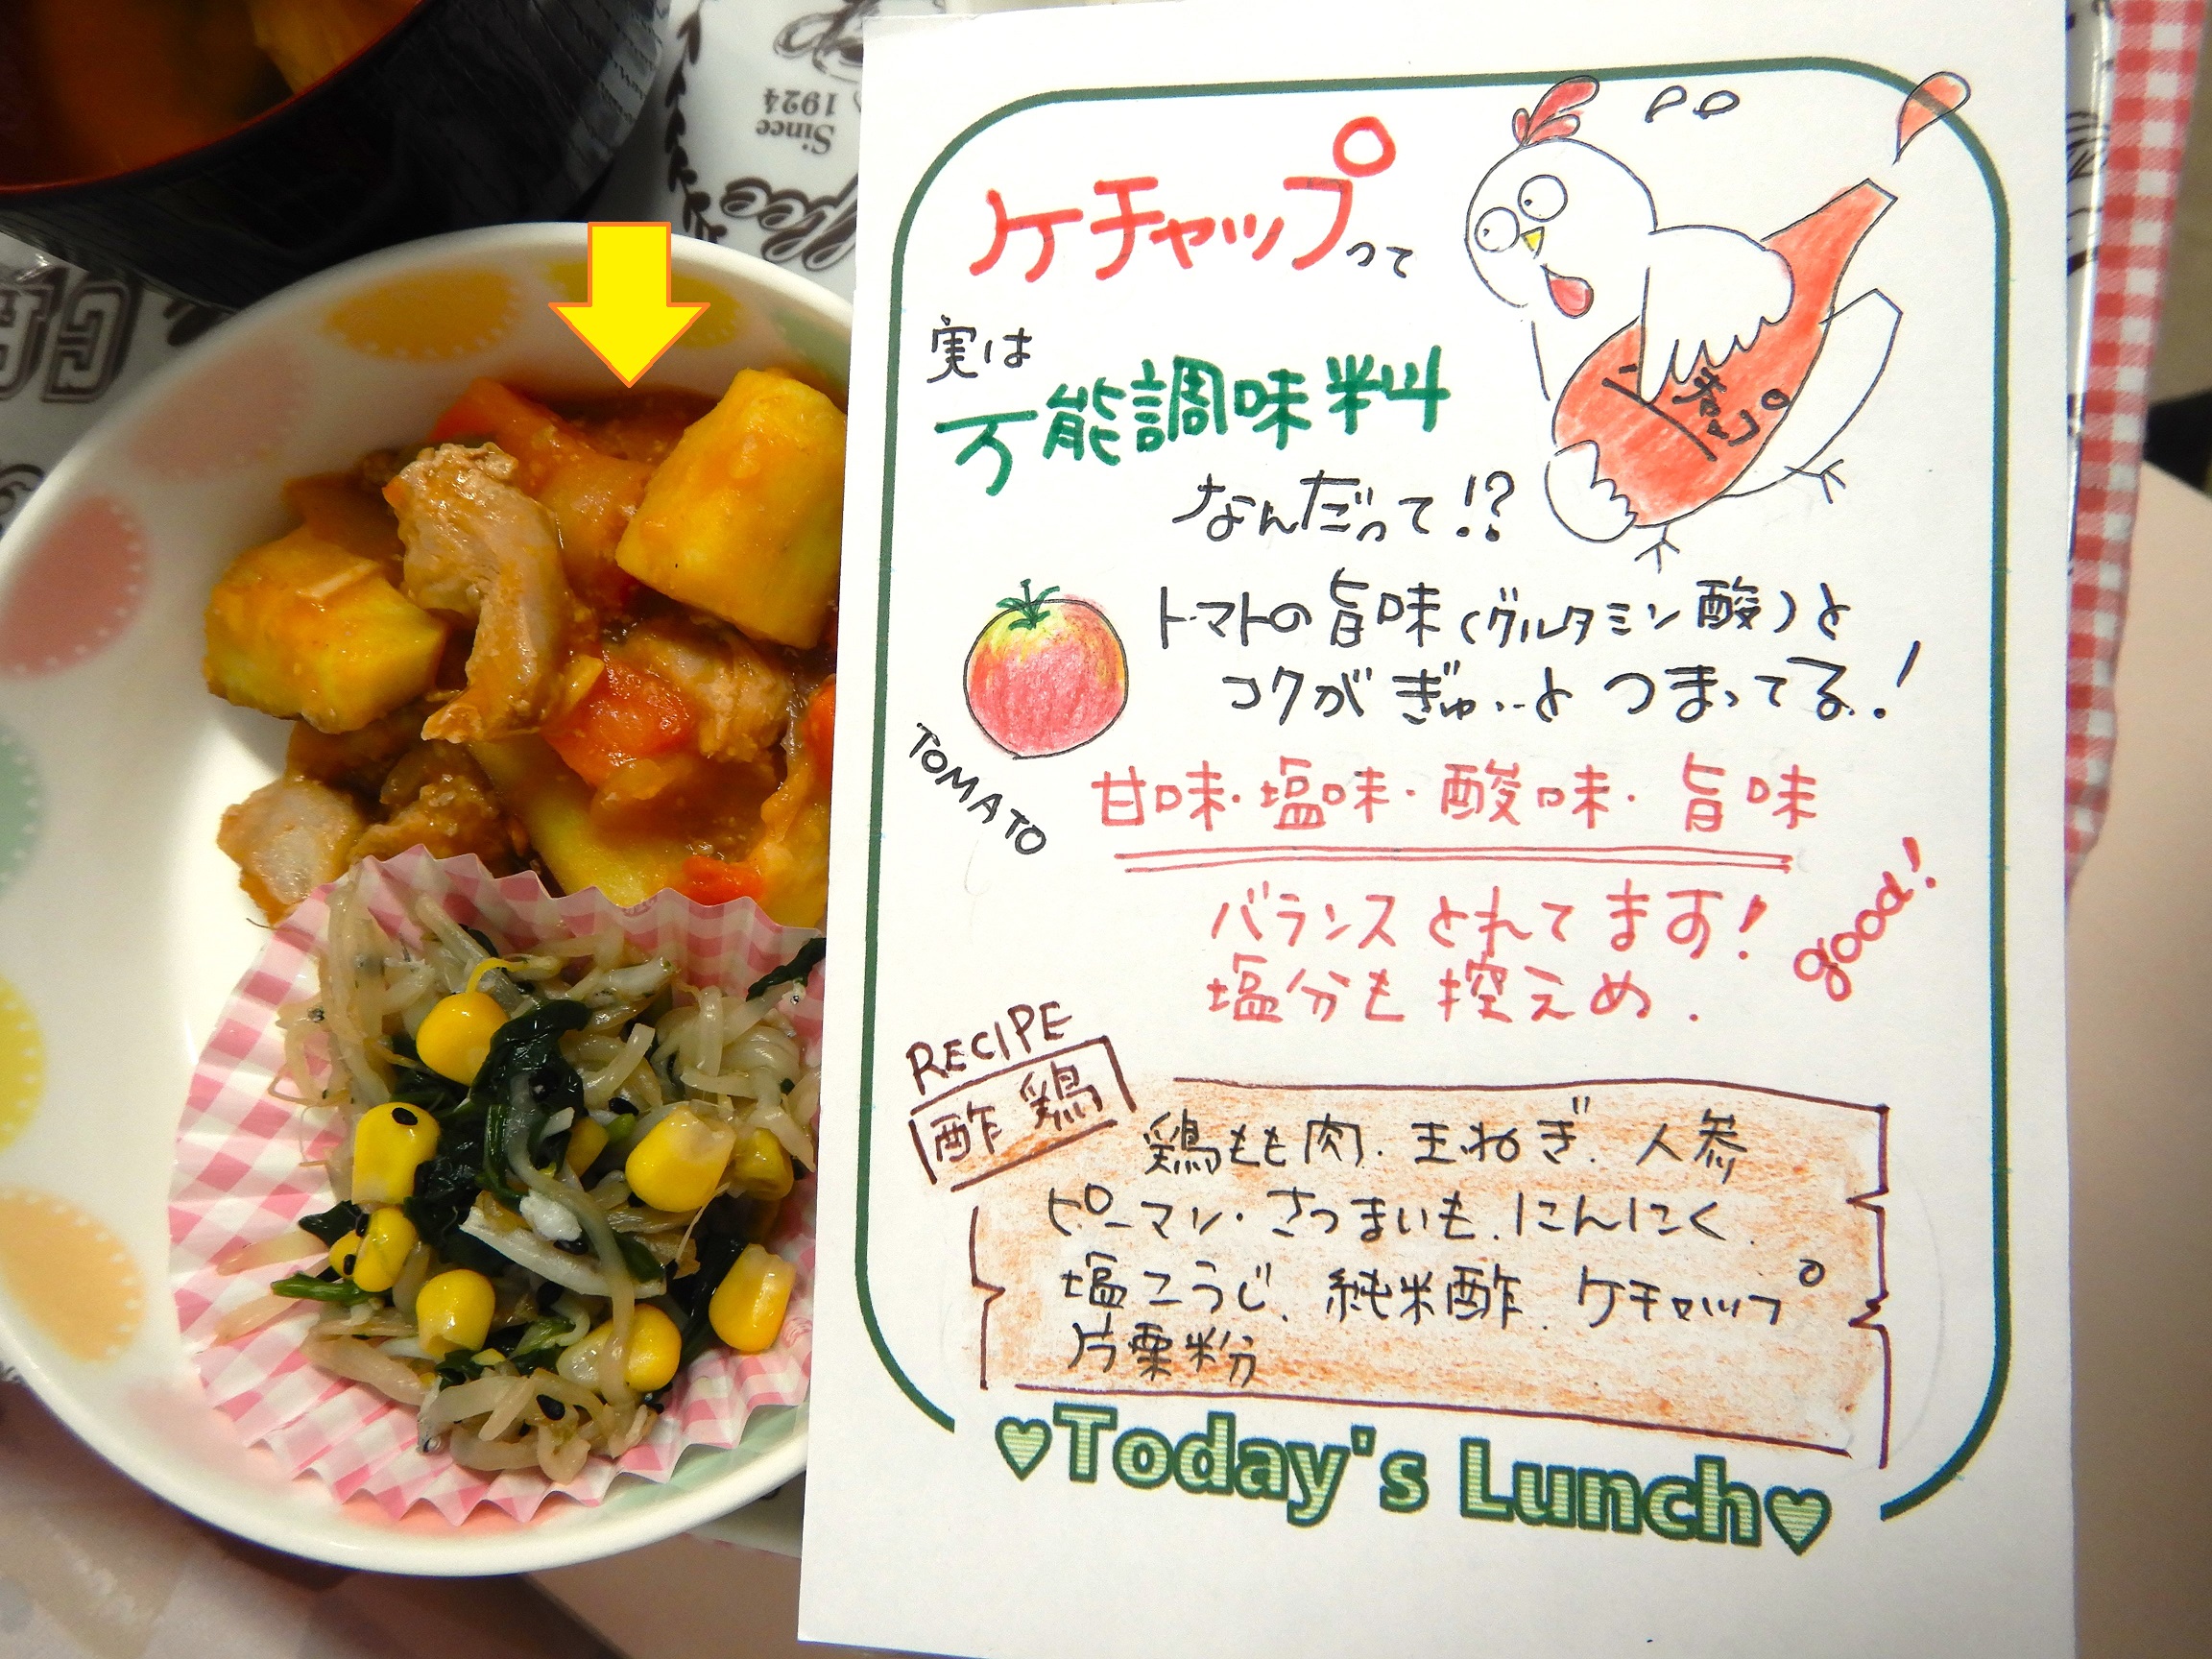 Since
1924
ケチャップって
実は
万能調味料
なんだって!?
トマトの旨味(グルタミン酸)と
コクがぎゅーっとつまってる!
TOMATO
甘味・塩味・酸味・旨味
バランスとれてます!
塩分も控えめ.
good!
RECIPE
酢鶏
鶏もも肉.玉ねぎ.人参
ピーマン・さつまいも.にんにく.
塩こうじ.純米酢.ケチャップ
片栗粉
♥Today's Lunch♥